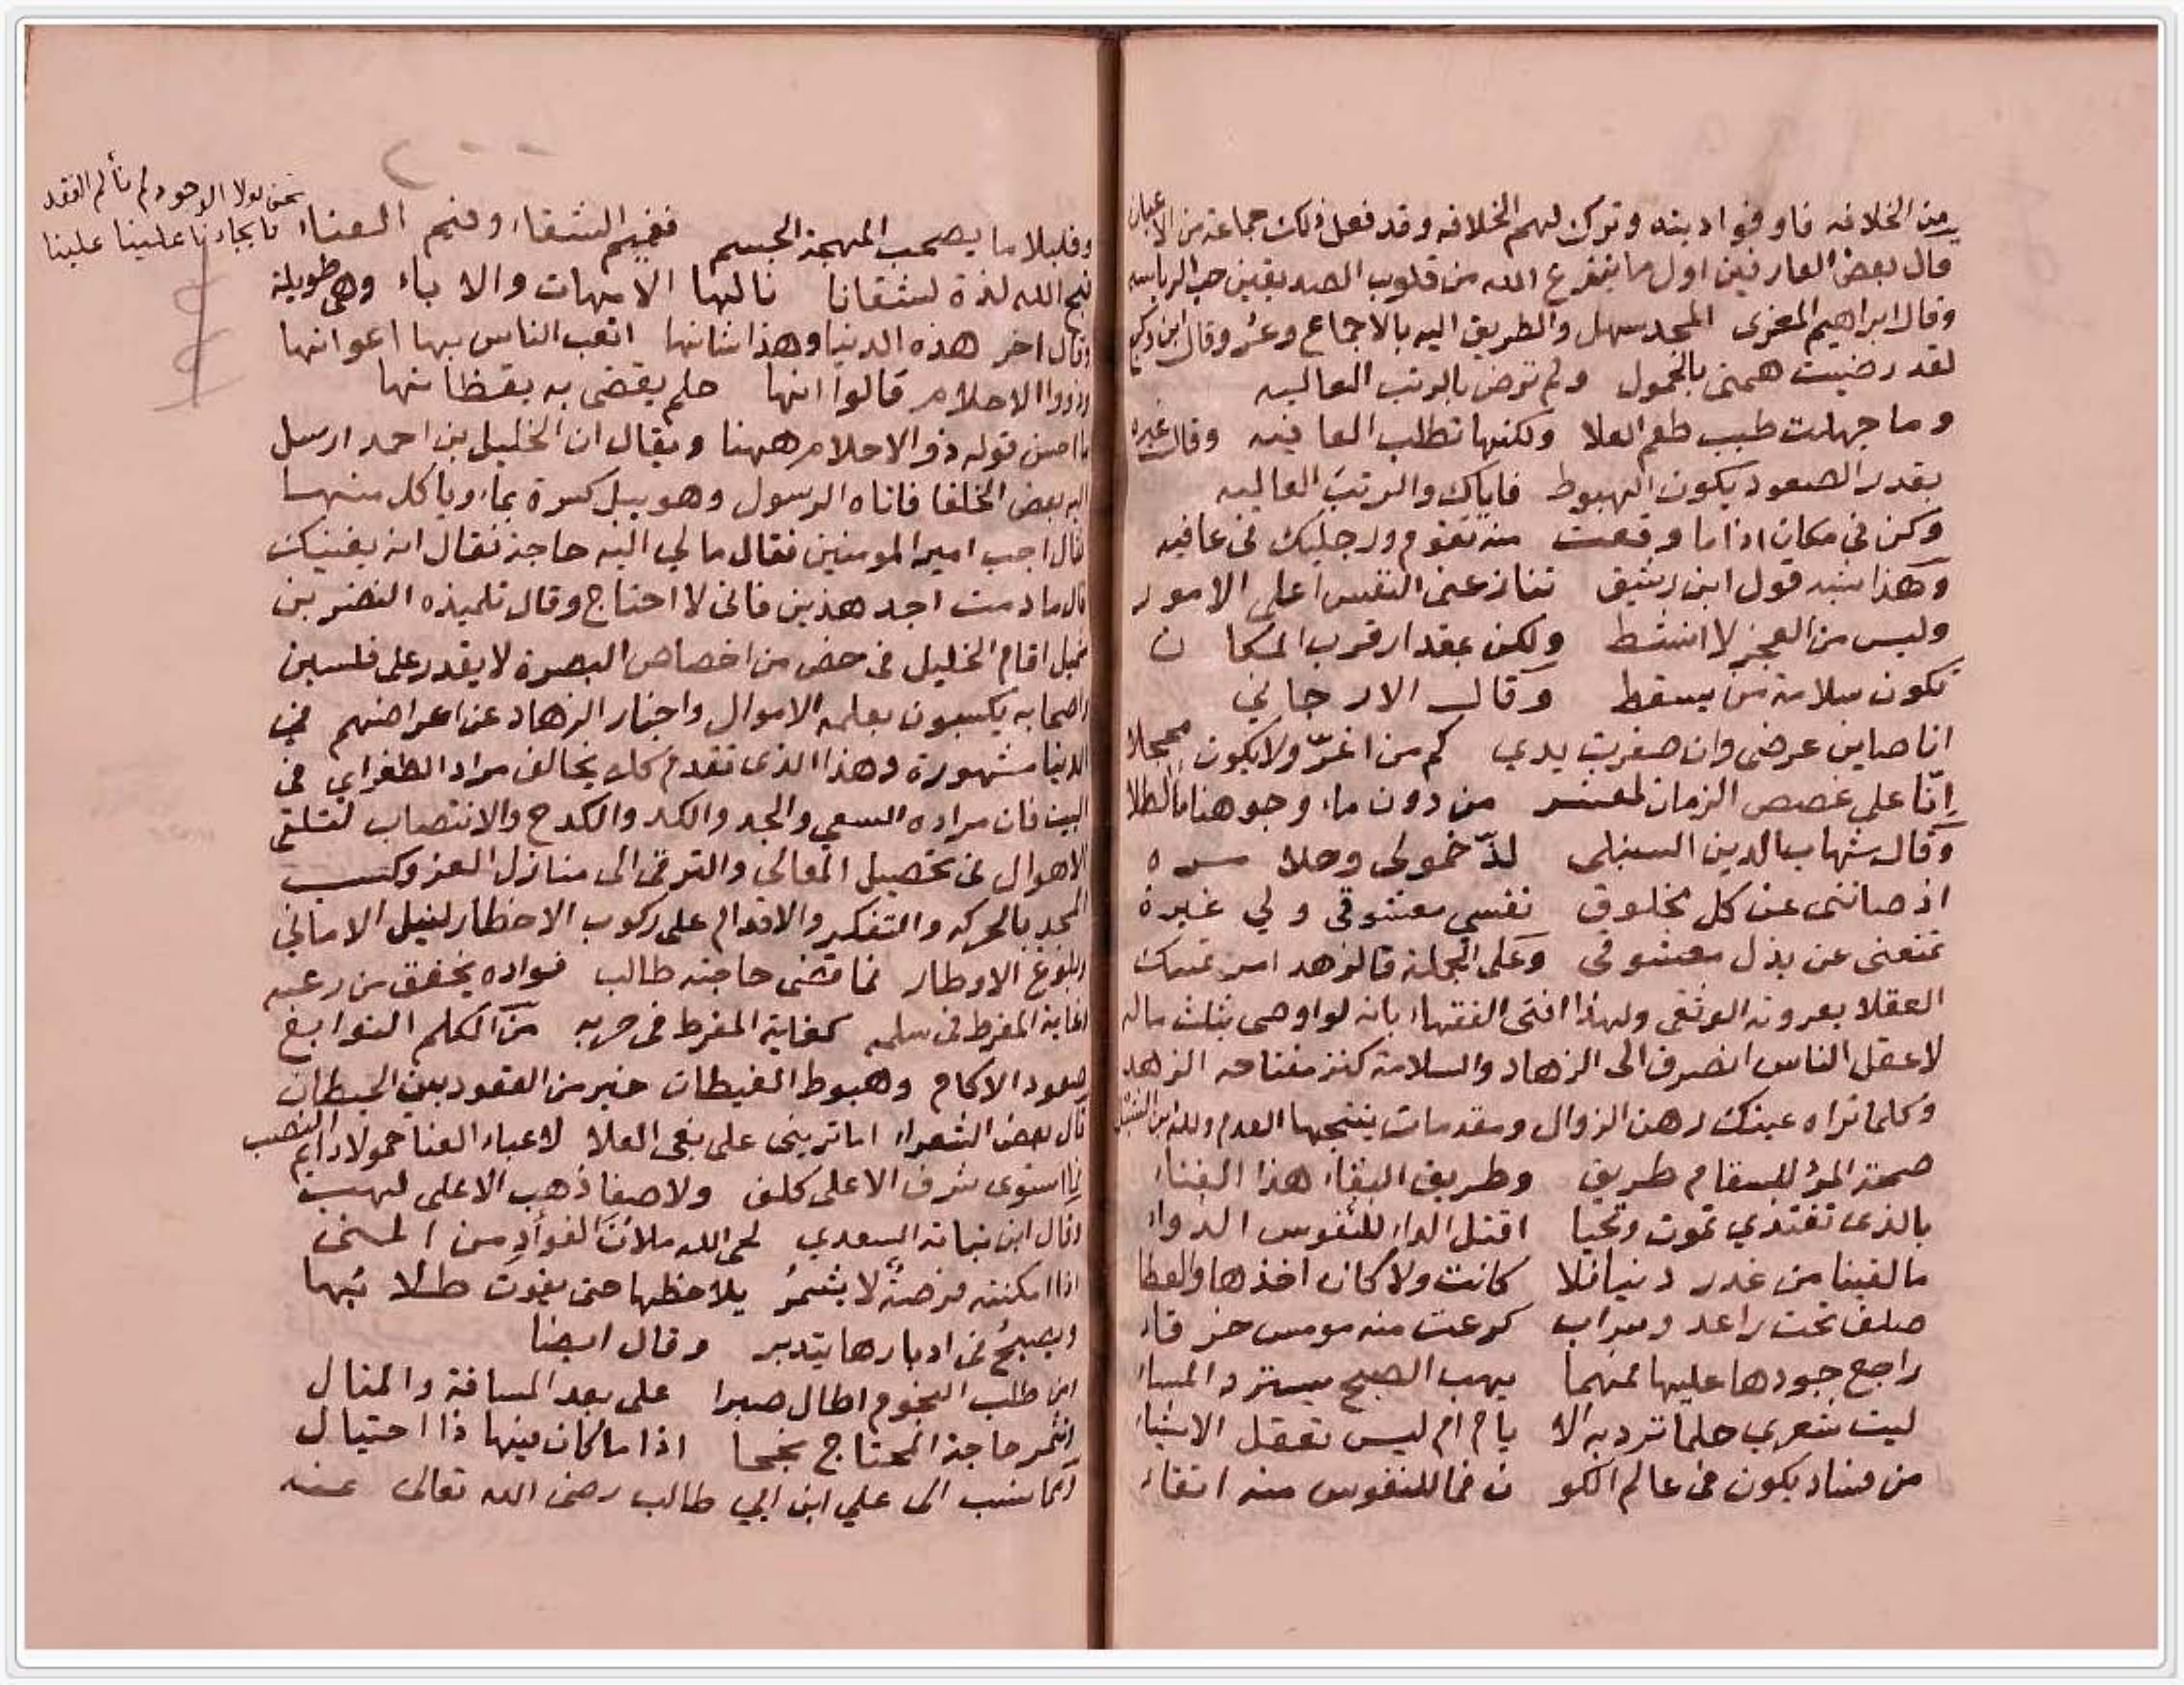 من الخلافه فاوفوا دينه وترك لهم الخلافه وقد فعل ذلك جماعة من الاعيان
قال بعض العارفين اول ما ينزع الله من قلوب الصديقين حب الرياسه
وقال ابراهيم المغزى المجد سهل والطريق اليه بالاجماع وعر وقال ابن
لقد رضيت همتى بالخمول ولم ترض بالرتب العاليه
وما جهلت طيب طعم العلا ولكنها تطلب العافيه وقال غيره
بقدر الصعود يكون الهبوط فاياك والرتب العاليه
وكن فى مكان اذا ما وقعت منه تقوم ورجليك فى عافيه
وهذا يشبه قول ابن رشيق تنازعنى النفس اعلى الامور
وليس من العجز لا انشط ولكن بمقدار قرب المكا ن
تكون سلامة من يسقط وقال الارجاني
انا صاين عرضى وان صفرت يدي كم من اغرّ ولا يكون محجلا
إنّا على غصص الزمان لمعشر من دون ماء وجوهنا ماء الطلا
وقال شهاب الدين السنبلى لذّ خمولى وحلا مره
اذ صاننى عن كل مخلوق نفسي معشوقى ولي غيرة
تمنعنى عن بذل معشوقى وعلى الجملة فالزهد امر تمسك
العقلا بعروته الوثقى ولهذا افتى الفقهاء بانه لو اوصى بثلث ماله
لاعقل الناس انصرف الى الزهاد والسلامة كنز مفتاحه الزهد
وكلما تراه عينك رهن الزوال ومقدمات ينتجها العدم ولله ابن الشبل
صحة المرؤ للسقام طريق وطريق البقاء هذا الفناء
بالذى تغتذي نموت ونحيا اقتل الداء للنفوس الدواء
ما لقينا من غدر دنيا فلا كانت ولا كان اخذها والعطا
صلف تحت راعد وسراب كرعت منه مومس خرقاء
راجع جودها عليها فمهما يهب الصبح يسترد المساء
ليت شعري حلما تردبه الا يام ام ليس تعقل الاشياء
من فساد يكون فى عالم الكو ن فما للنفوس منه اتقاء
وقليلا ما يصحب المهجة الجسم ففيم الشقاء وفيم العناء
قبح الله لذة لشقانا نالها الامهات والاباء وهى طويلة
وقال اخر هذه الدنيا وهذا شانها اتعب الناس بها اعوانها
وذووا الاحلام قالوا انها حلم يقضى به يقظانها
ما احسن قوله ذو الاحلام ههنا ويقال ان الخليل بن احمد ارسل
اليه بعض الخلفا فاتاه الرسول وهو يبل كسرة بماء وياكل منها
فقال اجب امير المومنين فقال مالي اليه حاجة فقال انه يغنيك
قال ما دمت اجد هذين فانى لا احتاج وقال تلميذه النضر بن
شميل اقام الخليل فى خص من اخصاص البصرة لا يقدر على فلسين
واصحابه يكسبون بعلمه الاموال واخبار الزهاد عن اعراضهم فى
الدنيا مشهورة وهذا الذى تقدم كله يخالف مراد الطغراي فى
البيت فان مراده السعي والجد والكد والكدح والانتصاب لتلقى
الاهوال فى تحصيل المعالي والترقى الى منازل العز وكسب
المجد بالحركه والتفكير والاقدام على ركوب الاخطار لنيل الامانى
وبلوغ الاوطار فما قضى حاجته طالب فواده يخفق من رعبه
وغاية المفرط فى سلمه كغاية المفرط فى حربه من الكلم النوابغ
صعود الاكام وهبوط الغيطان خير من القعود بين الحيطان
قال بعض الشعراء اما ترينى على بغى العلا لاعباء العنا حمولا دايم النصب
ما استوى شرف الاعلى كلف ولا صفا ذهب الاعلى لهب
وقال ابن نباتة السعدي لحى الله ملآن الفؤاد من المنى
اذا امكنته فرصة لا يشمر يلاحظها حتى يفوت طلابها
ويصبح فى ادبارها يتدبر وقال ايضا
ابن طلب النجوم اطال صبرا على بعد المسافة والمنال
حاجة المحتاج نجحا اذا ما كان فيها ذا احتيال
كما نسب الى علي ابن ابي طالب رضى الله تعالى عنه
نحن لولا الوجود لم نألم الفقد